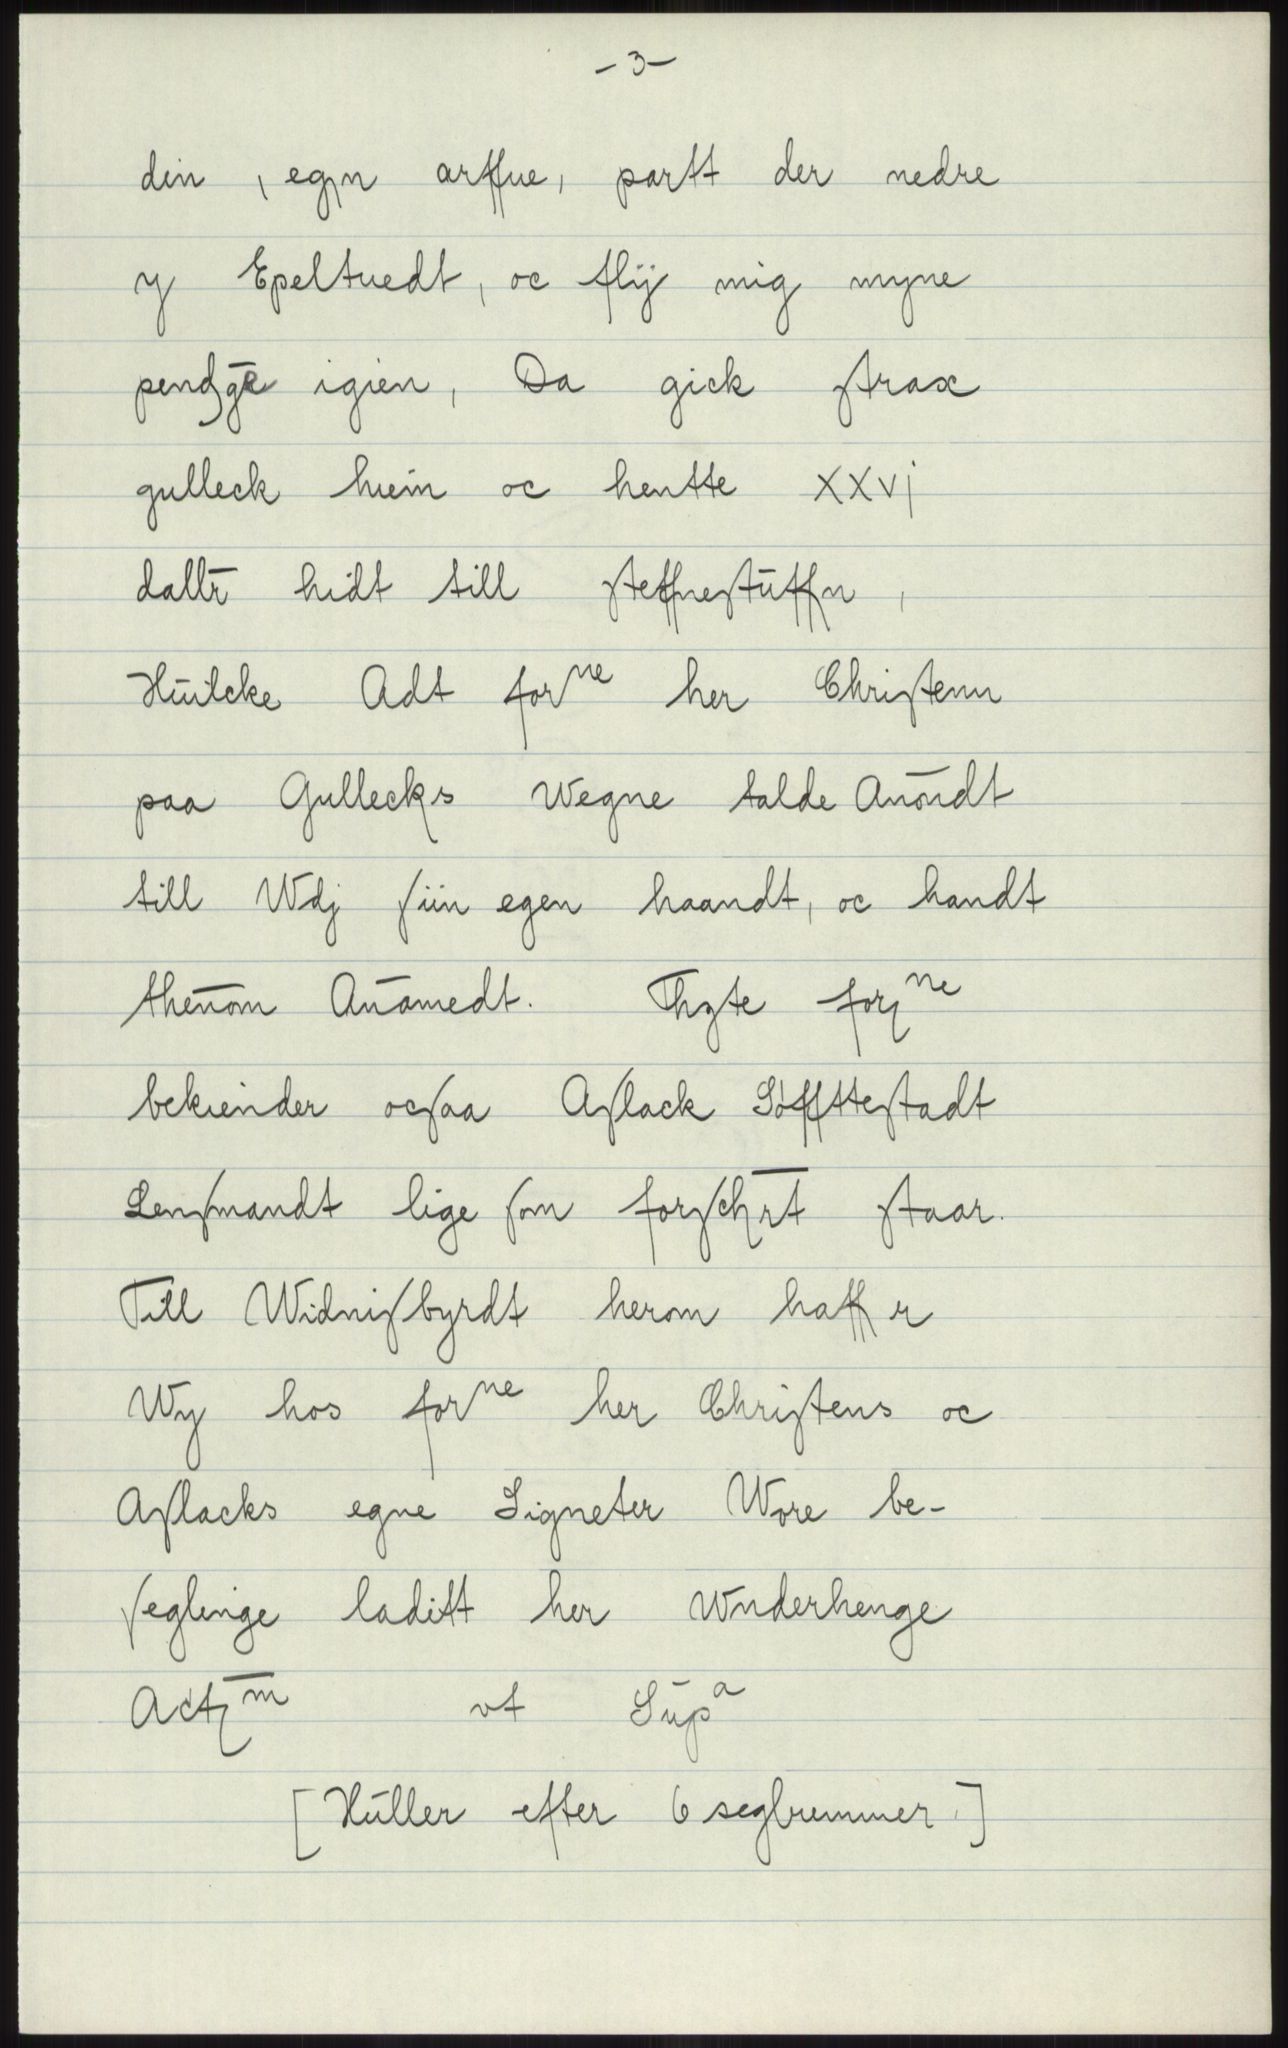 - 3 -
din, egn arffue, partt der nedre
y Epeltuedt, oc flÿ mig myne
igien, Da gick strax
gulleck hiem oc hentte XXVj
dallr̄ hidt till steffnestuffn,
Huilcke Adt forⁿᵉ her Christenn
paa Gullecks Wegne talde Anōndt
till Wdj siin egen haandt, oc handt
thennom Anāmedt. Thyte forⁿᵉ
bekiender ocsaa Aslack Søffttestadt
Lensmandt lige som forschr̄t staar.
Till Widnisbyrdt herom haffr
Wy hos forⁿᵉ her Christens oc
Aslacks egne Signeter Wore be-
seglinge laditt her Wnderhenge
Actᵐ̄ vt Supᵃ
[Huller efter 6 seglremmer.]